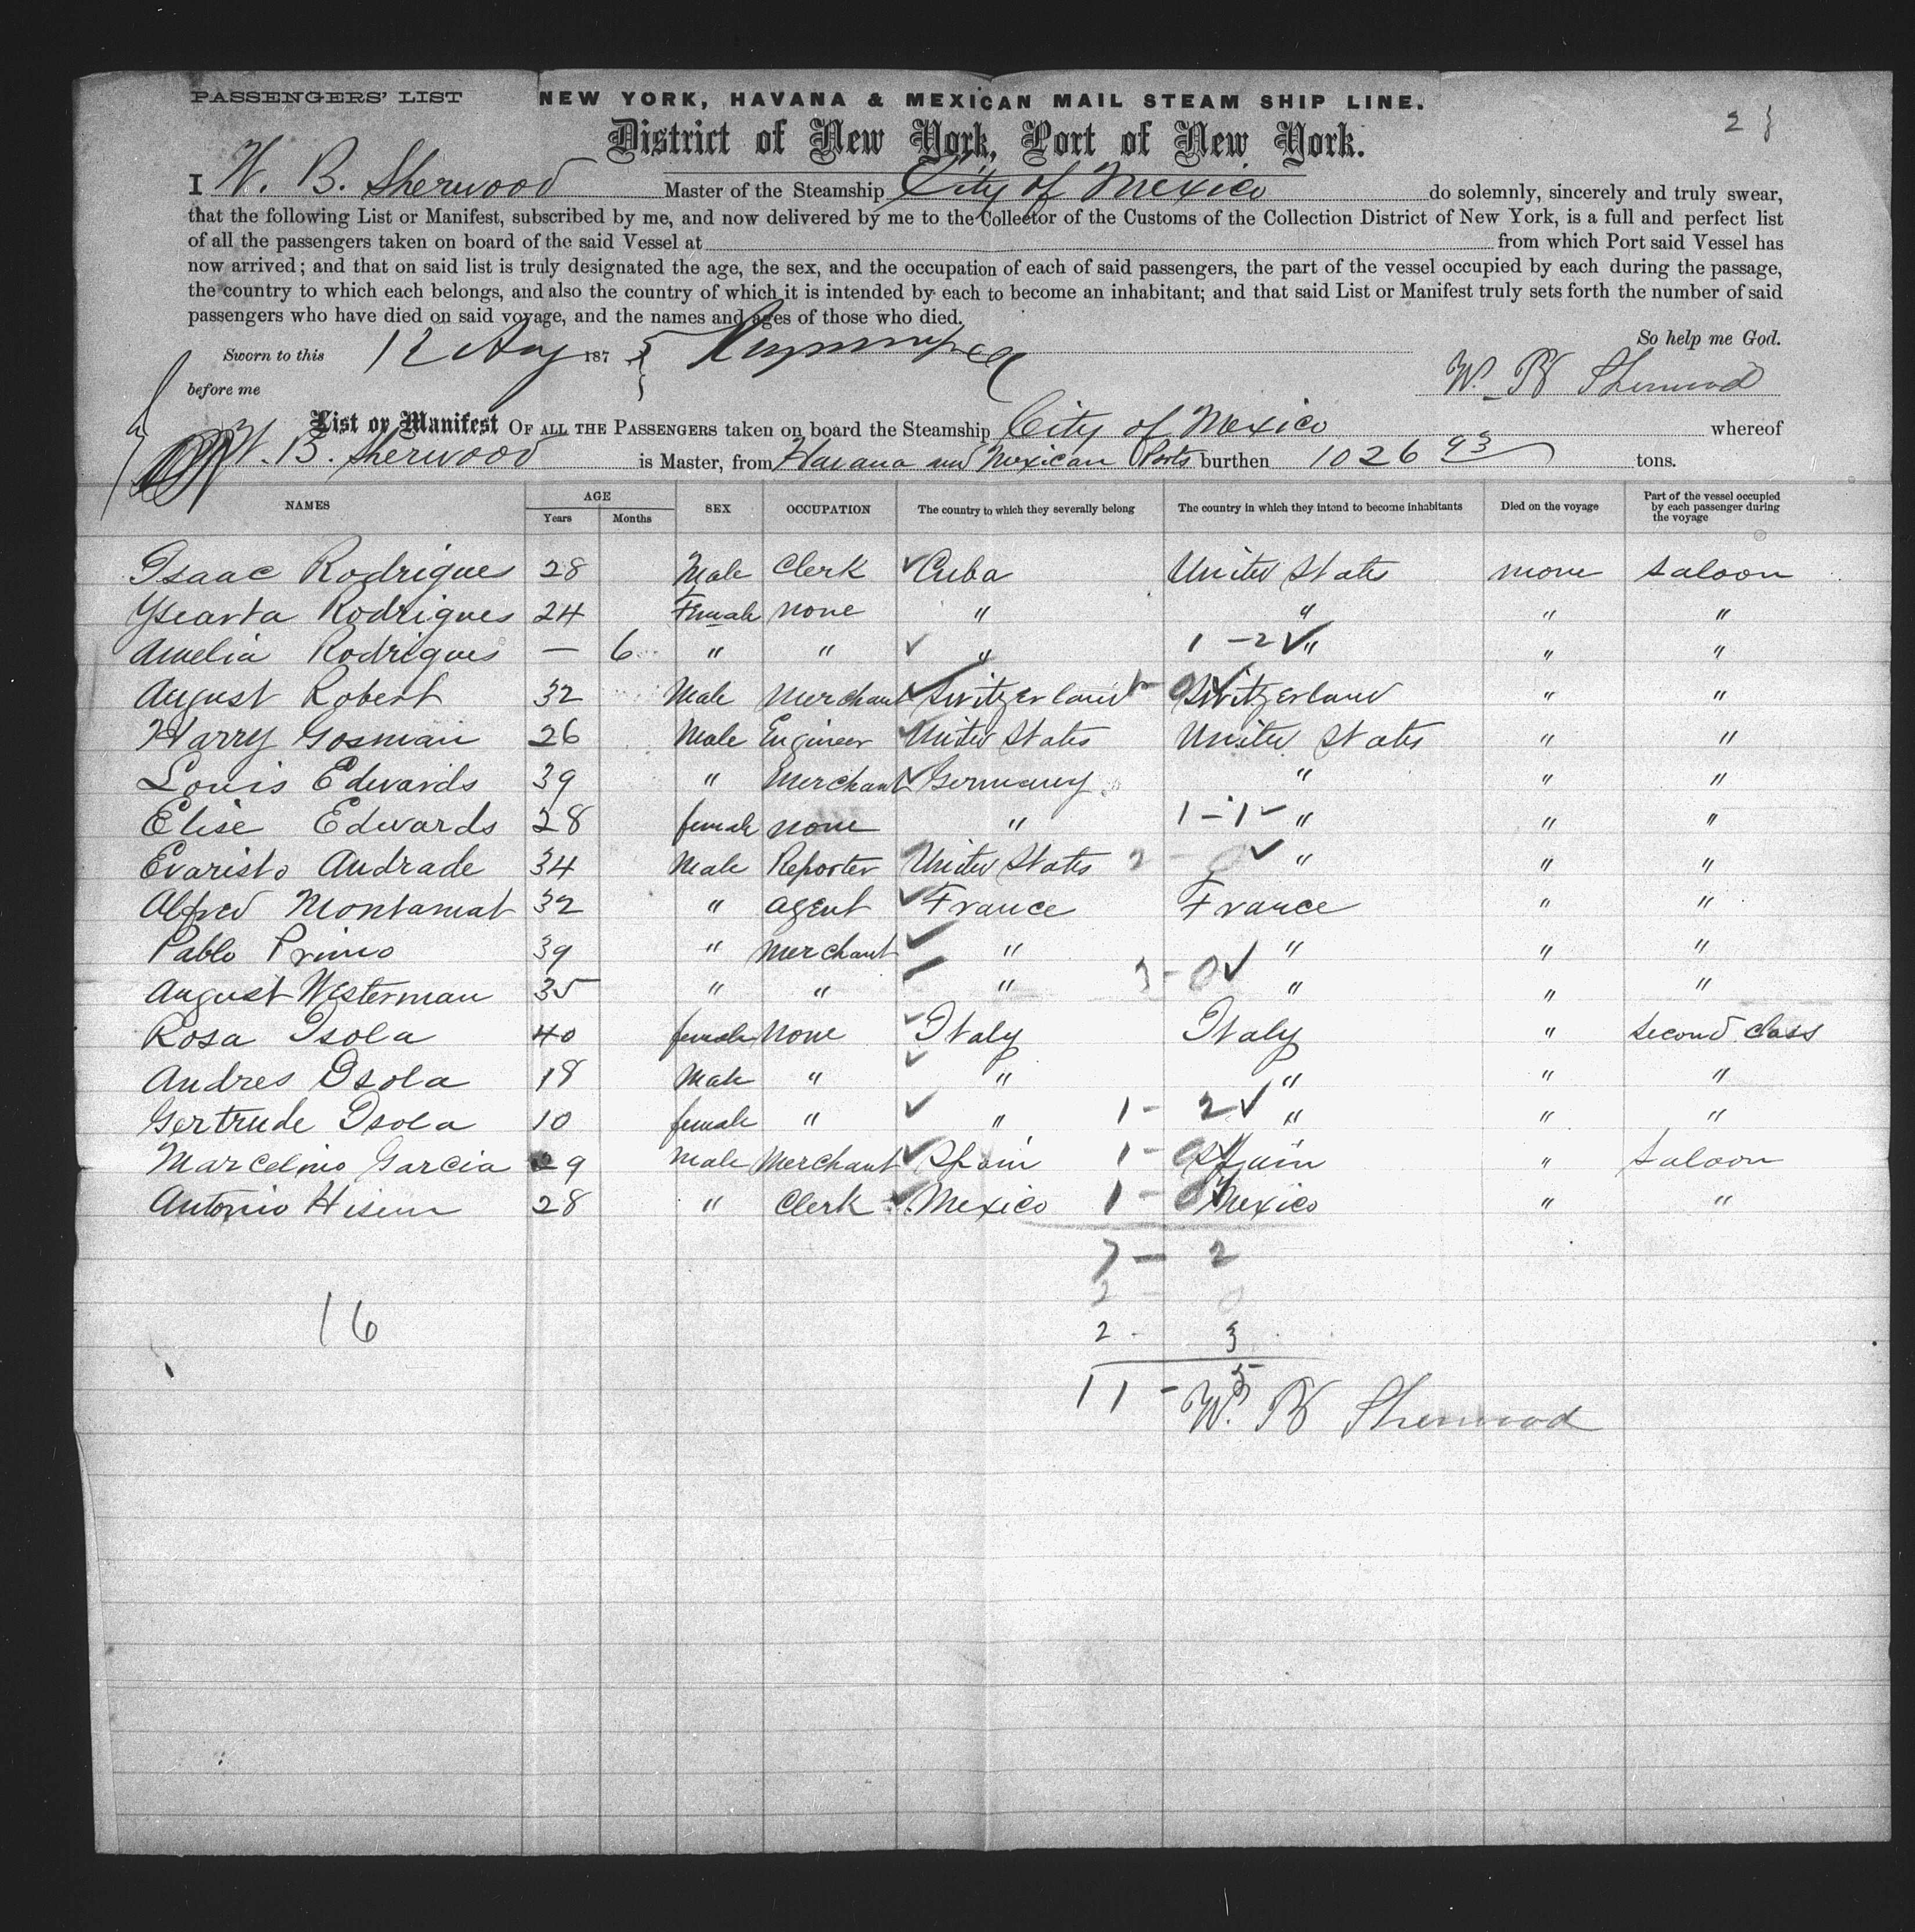 PASSENGERS' LIST NEW YORK, HAVANA & MEXICAN MAIL STEAM SHIP LINE.
2
District of New York, Port of New York.
I W. B. Sherwood Master of the Steamship City of Mexico do solemnly, sincerely and truly swear,
that the following List or Manifest, subscribed by me, and now delivered by me to the Collector of the Customs of the Collection District of New York, is a full and perfect list
of all the passengers taken on board of the said Vessel at from which Port said Vessel has
now arrived; and that on said list is truly designated the age, the sex, and the occupation of each of said passengers, the part of the vessel occupied by each during the passage,
the country to which each belongs, and also the country of which it is intended by each to become an inhabitant; and that said List or Manifest truly sets forth the number of said
passengers who have died on said voyage, and the names and ages of those who died.
So help me God.
Sworn to this 12 Aug 1875
before me W. B Sherwood
List or Manifest OF ALL THE PASSENGERS taken on board the Steamship City of Mexico whereof
W. B. Sherwood is Master, from Havana and Mexican Ports burthen 1026 93 tons.
NAMES AGE Years Months SEX OCCUPATION The country to which they severally belong The country in which they intend to become inhabitants Died on the voyage Part of the vessel occupied by each passenger during the voyage
Isaac Rodrigues 28 Male Clerk Cuba United States none Saloon
Rodrigues 24 Female none " " " "
Amelia Rodrigues — 6 " " " 1 - 2 " " "
August Robert 32 Male Merchant Switzerland 1 - 0 Switzerland " "
Harry Gosman 26 Male Engineer United States United States " "
Louis Edwards 39 " Merchant Germany " " "
Elise Edwards 28 female none " 1 - 1 - " " "
Evaristo Andrade 34 Male Reporter United States 2 - 0 " " "
Alfred Montamat 32 " agent France France " "
Pablo Primo 39 " merchant " " " "
August Westerman 35 " " " 3 - 0 " " "
Rosa Isola 40 female None Italy Italy " Second Class
Andres Isola 18 Male " " " " "
Gertrude Isola 10 female " " 1 - 2 " " "
Marcelino Garcia 29 Male Merchant Spain 1 - 0 Spain " Saloon
Antonio 28 " Clerk Mexico 1 - 0 Mexico " "
7 - 2
2 - 0
16
2 - 3
11 - 5
W. B Sherwood